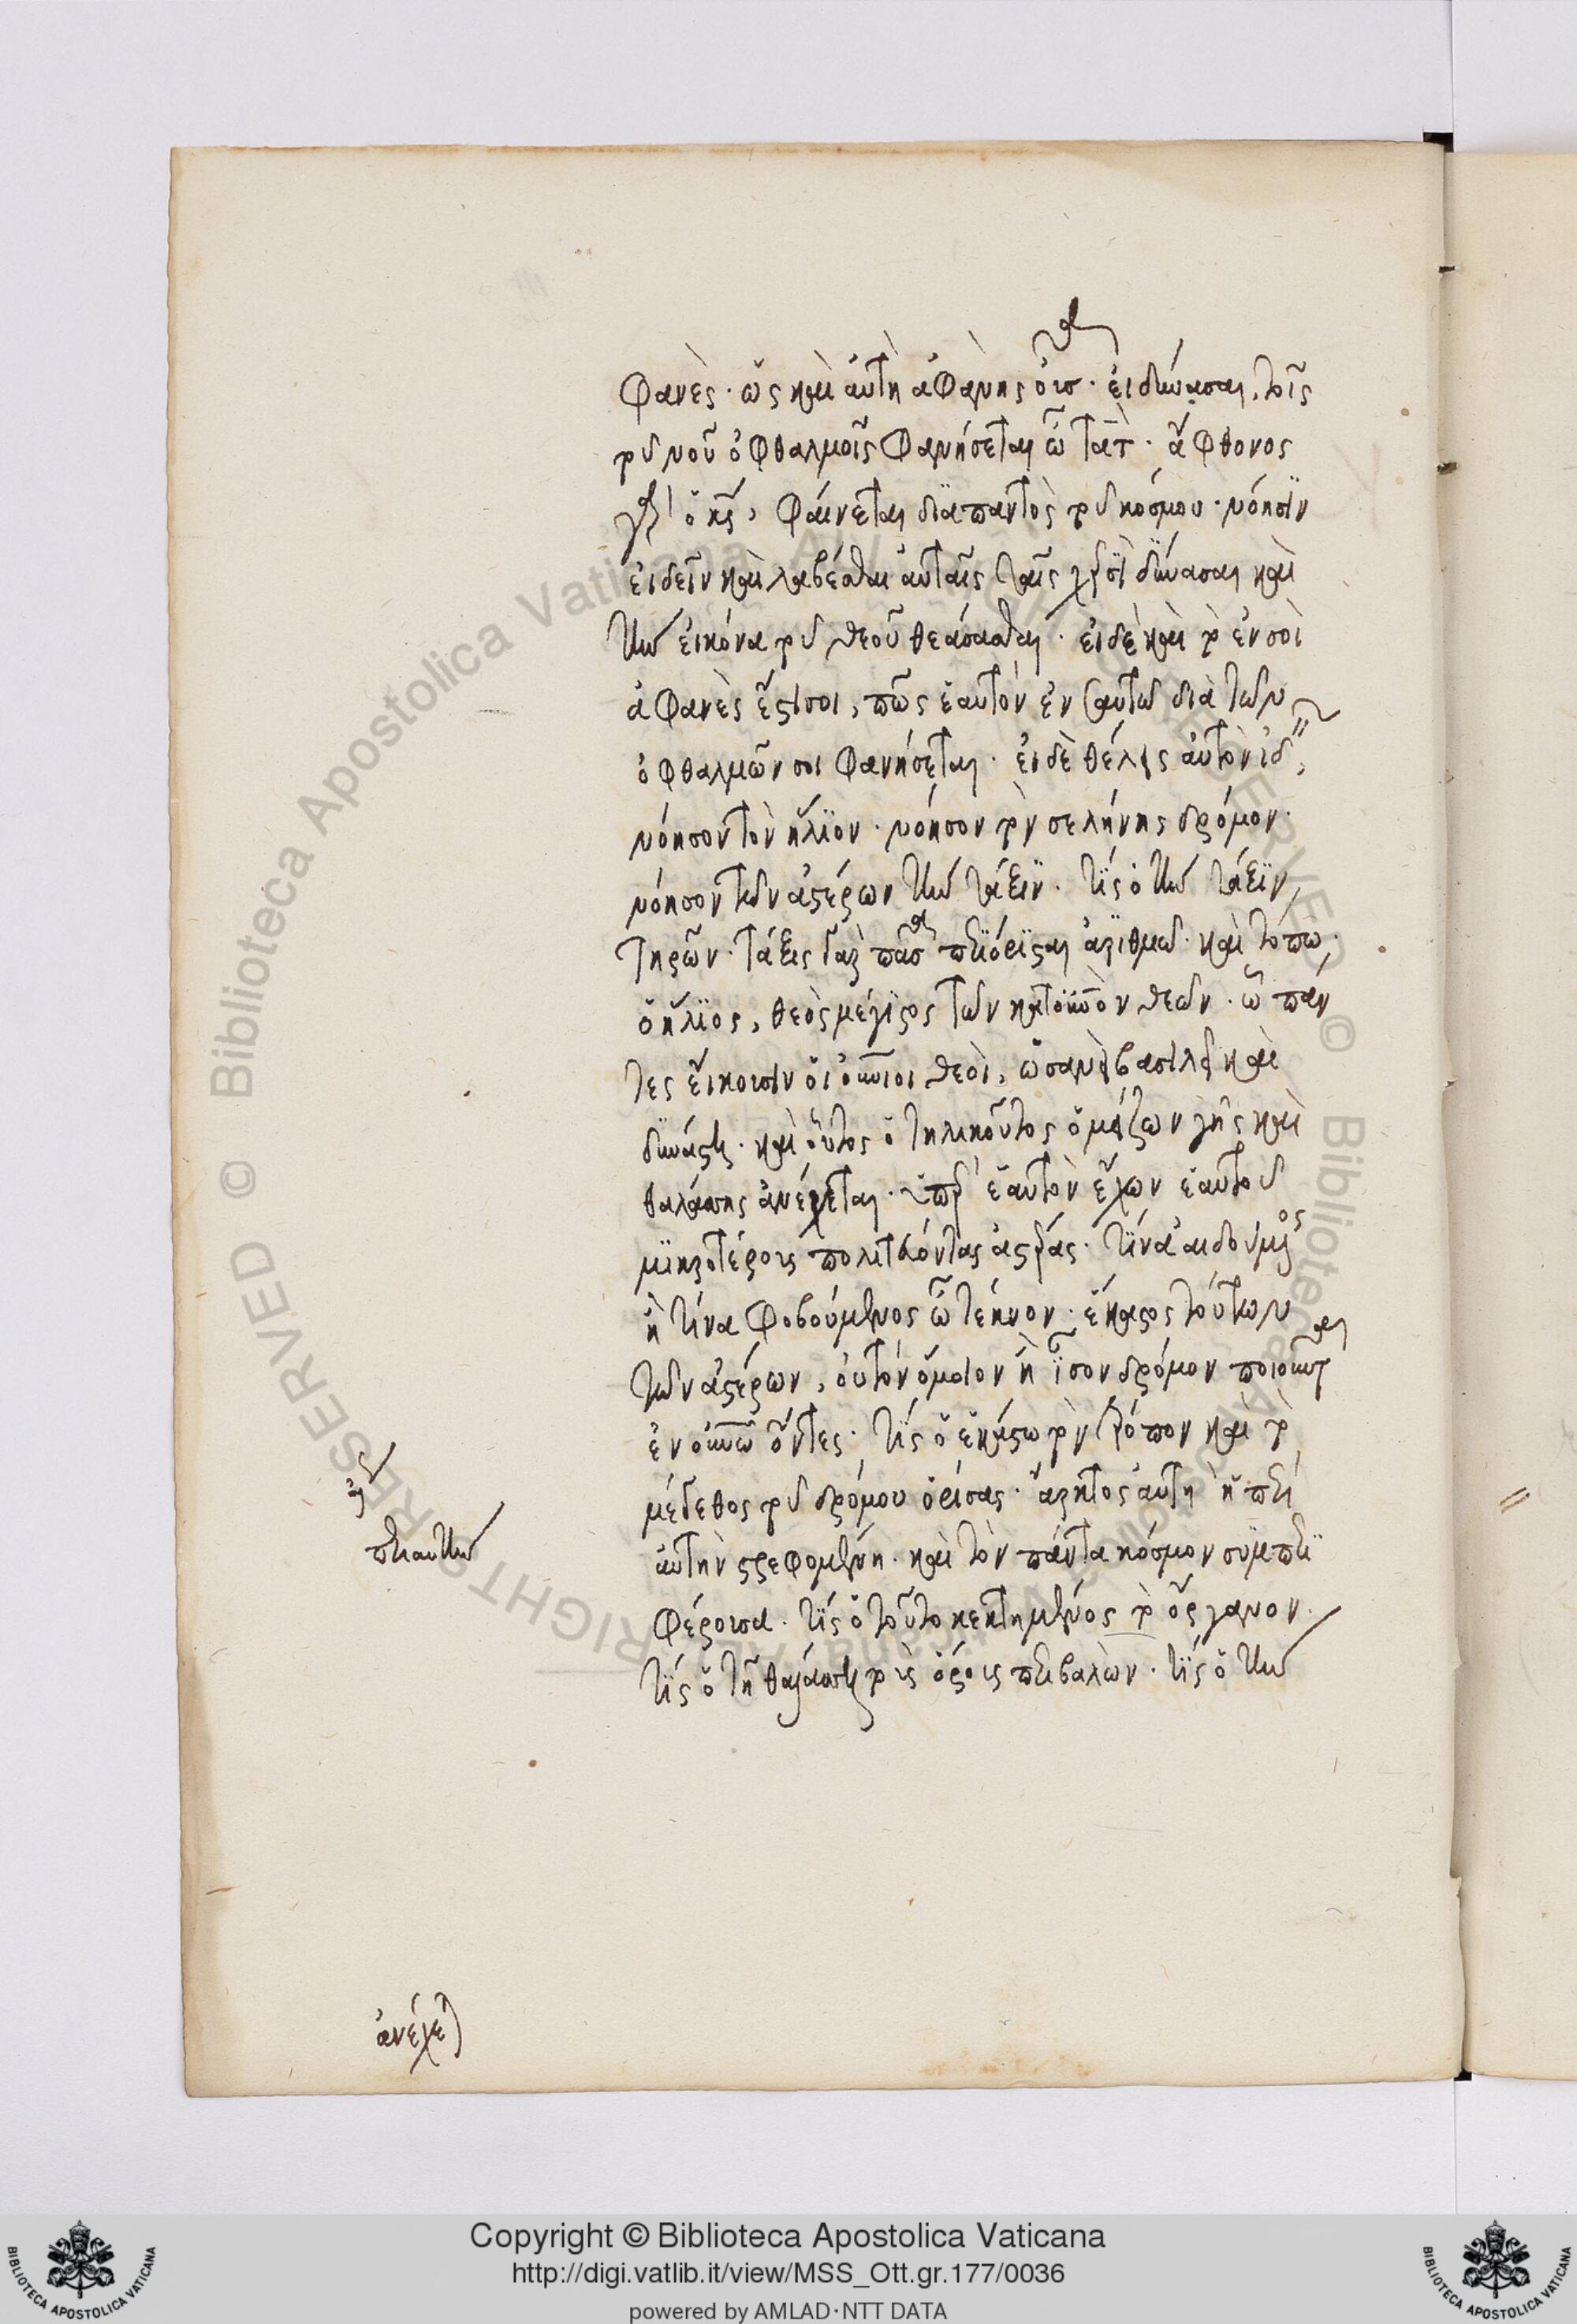 φανὲς· ὡς καὶ αὐτὴ ἀφανὴς οὖσα· εἰ δύνασαι, τοῖς
τοῦ νοῦ ὀφθαλμοῖς φανήσεται ὦ τάτ· ἄφθονος
γὰρ ὁ κς, φαίνεται διαπαντὸς τοῦ κόσμου· νόησϊν
εἰδεῖν καὶ λαβέσθαι αὐταῖς ταῖς χερσὶ δύνασαι καὶ
τὴν εἰκόνα τοῦ θεοῦ θεάσασθαι· εἰ δὲ καὶ τὸ ἐν σοὶ
ἀφανὲς ἔστι σοι, πῶς ἑαυτὸν ἐν σαυτῶ διὰ τῶν
ὀφθαλμῶν σοι φανήσεται· εἰ δὲ θέλεις αὐτὸν ἰδεῖν,
νόησον τὸν ἥλϊον· νόησον τὸν σελήνης δρόμον·
νόησον τῶν ἀστέρων τὴν τάξϊν· τίς ὁ τὴν τάξϊν
τηρῶν· τάξις γὰρ πᾶσα περϊόρϊσται ἀριθμῶ· καὶ τόπω·
ὁ ἥλϊος, θεὸς μέγϊστος τῶν κατ' οὐνὸν θεῶν· ὧ πάν
τες εἴκουσιν οἱ οὐνιοι θεοὶ, ὡσανεὶ βασιλεῖ καὶ
δυνάστη· καὶ οὗτος ὁ τηλικοῦτος ὁ μείζων γῆς καὶ
θαλάττης ἀνέχεται· ὑπὲρ ἑαυτὸν ἔχων ἑαυτοῦ
μϊκροτέρους πολιτεύοντας ἀστέρας· τίνα αἰδούμενος
ἢ τίνα φοβούμενος ὦ τέκνον· ἕκαστος τούτων
τῶν ἀστέρων, οὐ τὸν ὅμοιον ἢ ἴσον δρόμον ποιοῦνται
ἐν οὐνῶ ὄντες· τίς ὁ ἑκάστω τὸν τρόπον καὶ τὸ
μέγεθος τοῦ δρόμου ὁρίσας· ἄρκτος αὕτη ἡ περὶ
αὐτὴν στρεφομένη· καὶ τὸν πάντα κόσμον συμπερϊ
φέρουσα· τίς ὁ τοῦτο κεκτημένος τὸ ὄργανον·
τίς ὁ τῆ θαλάσση τοὺς ὅρους περιβαλών· τίς ὁ τὴν
περιαυτὴν
ἀνέχε
Copyright © Biblioteca Apostolica Vaticana
http://digi.vatlib.it/view/MSS_Ott.gr.177/0036
powered by AMLAD·NTT DATA